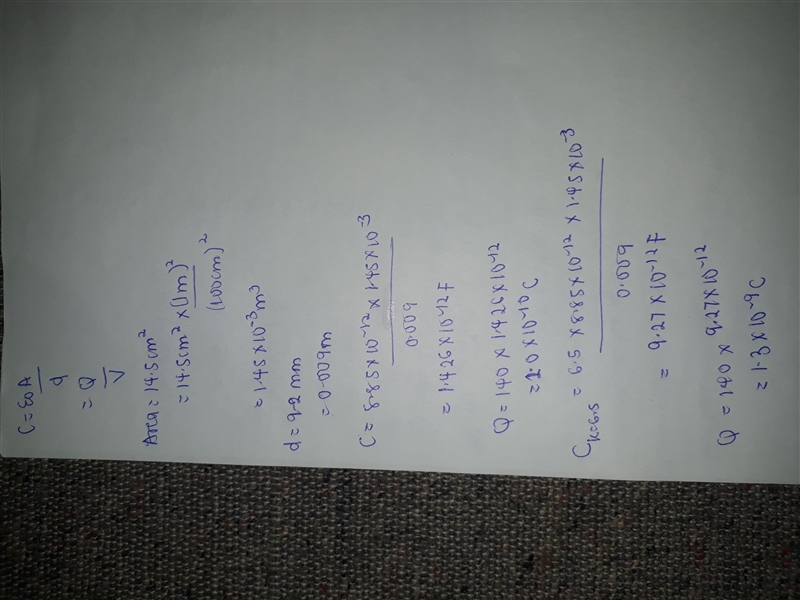 C = ε0A
d
= Q
V
Area = 14.5cm²
= 14.5cm² × (1m)²
(100cm)²
= 1.45×10⁻³m³
d = 9.2mm
= 0.009m
C = 8.85×10⁻¹² × 1.45×10⁻³
0.009
= 1.426×10⁻¹²F
Q = 140 × 1.426×10⁻¹²
= 2.0×10⁻¹⁰C
C K=6.5 = 6.5 × 8.85×10⁻¹² × 1.45×10⁻³
0.009
= 9.27×10⁻¹²F
Q = 140 × 9.27×10⁻¹²
= 1.3×10⁻⁹C